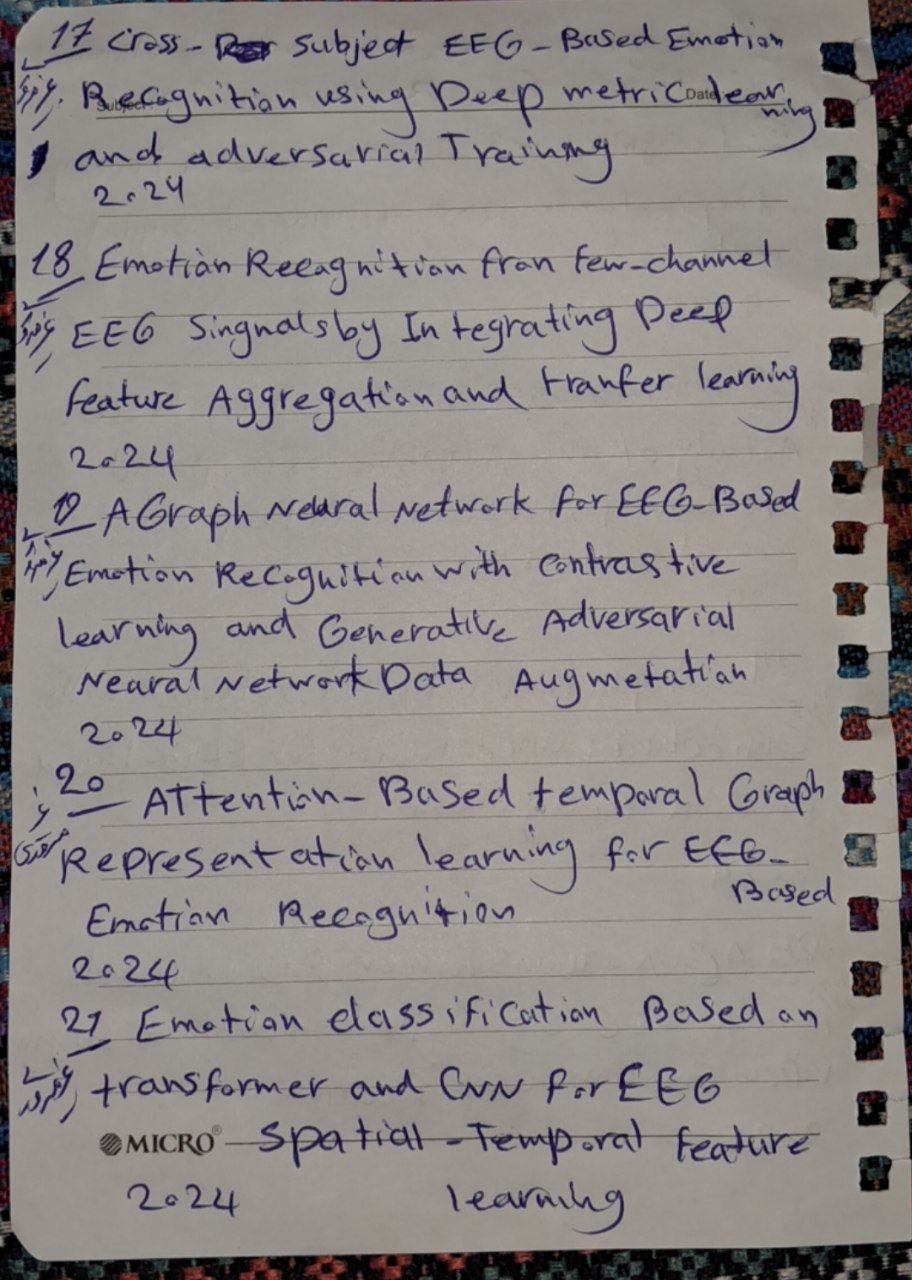 17 Cross- Subject EEG-Based Emotion
Recognition using Deep metric lear
ning
and adversarial Training
2024
18 Emotion Recognition from few-channel
EEG Singnals by Integrating Deep
feature Aggregation and tranfer learning
2024
19 A Graph Neural Network for EEG-Based
Emotion Recognition with contrastive
learning and Generative Adversarial
Nearal Network Data Augmetation
2024
20 ATtention-Based temporal Graph
Representation learning for EEG-
Based
Emotion Recognition
2024
21 Emotion classification Based on
transformer and CNN for EEG
MICRO Spatial-Temporal feature
2024 learning